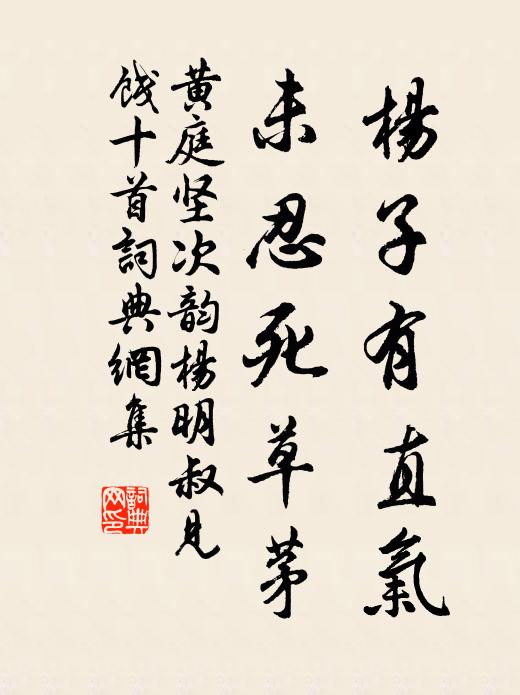 楊子有直氣
未忍死草茅
黄庭坚次韵楊明叔見
餞十首詞典網集
詞典网印